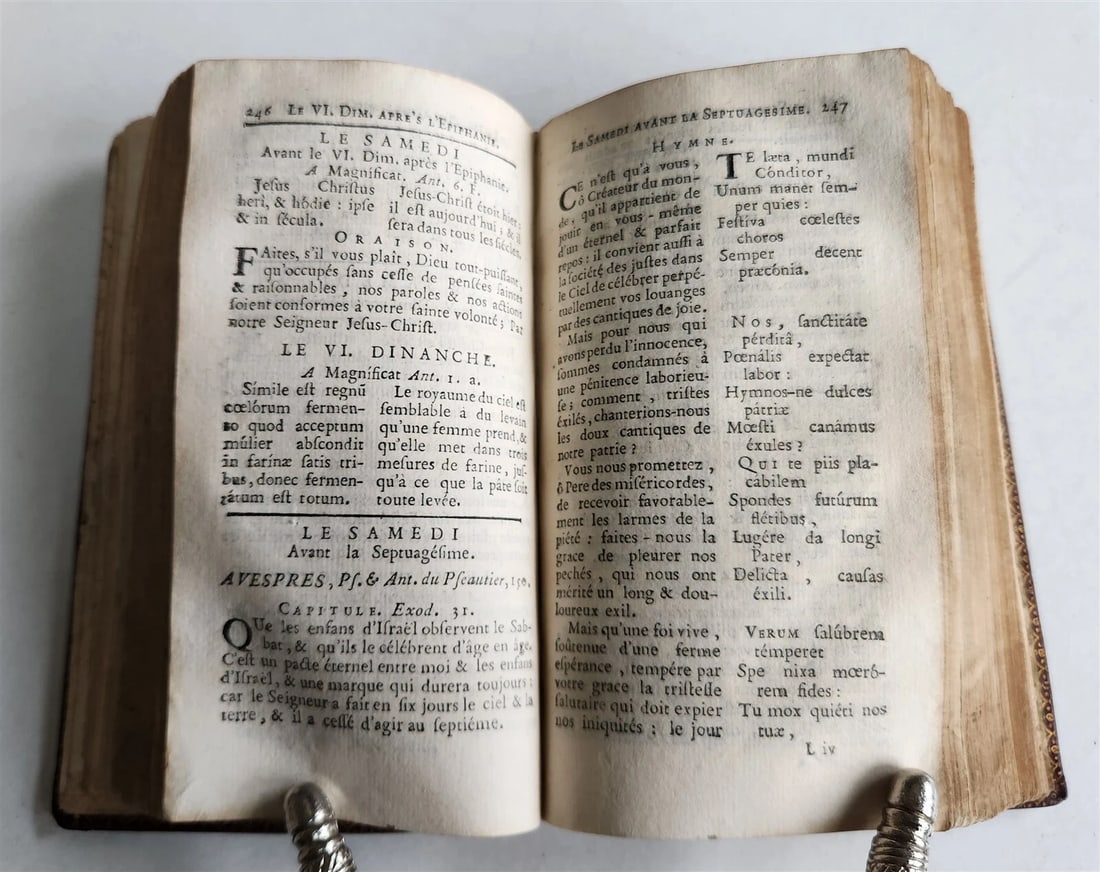 246 LE VI. DIM. APRE'S L'EPIPHANIE.
LE SAMEDI
Avant le VI. Dim. après l'Epiphanie.
A Magnificat. Ant. 6. F.
Jesus Christus
heri, & hódie : ipse
& in sécula.
Jesus-Christ étoit hier,
il est aujourd'hui ; & il
sera dans tous les siécles.
ORAISON.
FAites, s'il vous plait, Dieu tout-puissant,
qu'occupés sans cesse de pensées saintes
& raisonnables, nos paroles & nos actions
soient conformes à votre sainte volonté ; Par
notre Seigneur Jesus-Christ.
LE VI. DINANCHE.
A Magnificat Ant. 1. a.
Símile est regnū
cœlórum fermen-
to quod acceptum
múlier abscondit
in farínæ satis tri-
bus, donec fermen-
tátum est totum.
Le royaume du ciel est
semblable à du levain
qu'une femme prend, &
qu'elle met dans trois
mesures de farine, jus-
qu'à ce que la pâte soit
toute levée.
LE SAMEDI
Avant la Septuagésime.
A VESPRES, Ps. & Ant. du Pseautier, 150.
CAPITULE. Exod. 31.
QUe les enfans d'Israël observent le Sab-
bat, & qu'ils le célébrent d'âge en âge.
C'est un pacte éternel entre moi & les enfans
d'Israël, & une marque qui durera toujours :
car le Seigneur a fait en six jours le ciel & la
terre, & il a cessé d'agir au septiéme.
LE SAMEDI AVANT LA SEPTUAGESIME. 247
HYMNE.
CE n'est qu'à vous,
ô Créateur du mon-
de, qu'il appartient de
jouir en vous-même
d'un éternel & parfait
repos : il convient aussi à
la société des justes dans
le Ciel de célébrer perpé-
tuellement vos louanges
par des cantiques de joie.
Mais pour nous qui
avons perdu l'innocence,
sommes condamnés à
une pénitence laborieu-
se ; comment, tristes
éxilés, chanterions-nous
les doux cantiques de
notre patrie ?
Vous nous promettez,
ô Pere des miséricordes,
de recevoir favorable-
ment les larmes de la
piété : faites-nous la
grace de pleurer nos
pechés, qui nous ont
mérité un long & dou-
loureux exil.
Mais qu'une foi vive,
soûtenue d'une ferme
espérance, tempére par
votre grace la tristesse
salutaire qui doit expier
nos iniquités : le jour
TE læta, mundi
Cónditor,
Unum manet sem-
per quies :
Festíva cœlestes
choros
Semper decent
præcónia.
NOS, sanctitáte
pérditâ,
Pœnális expectat
labor :
Hymnos-ne dulces
pátriæ
Mœsti canámus
éxules ?
QUI te piis pla-
cábilem
Spondes futúrum
flétibus,
Lugére da longi
Pater,
Delícta, causas
éxili.
VERUM salúbrem
témperet
Spe nixa mœró-
rem fides :
Tu mox quiéti nos
tuæ,
L iv